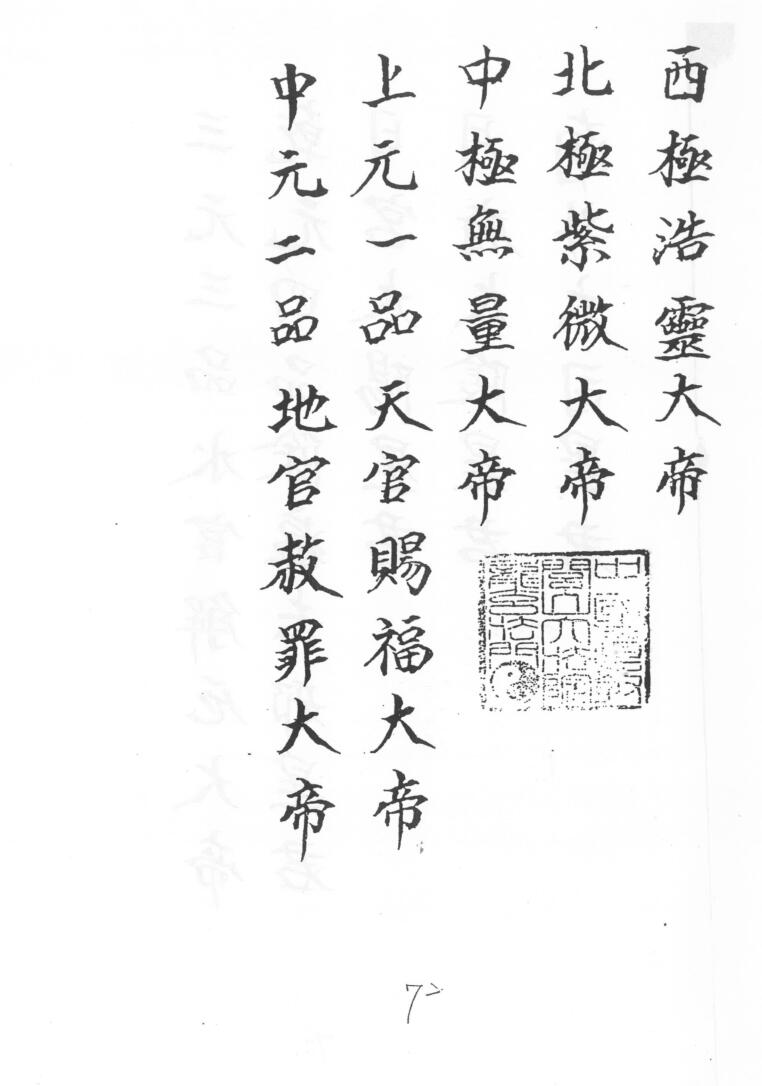 西極浩靈大帝
北極紫微大帝
中極無量大帝
上元一品天官賜福大帝
中元二品地官赦罪大帝